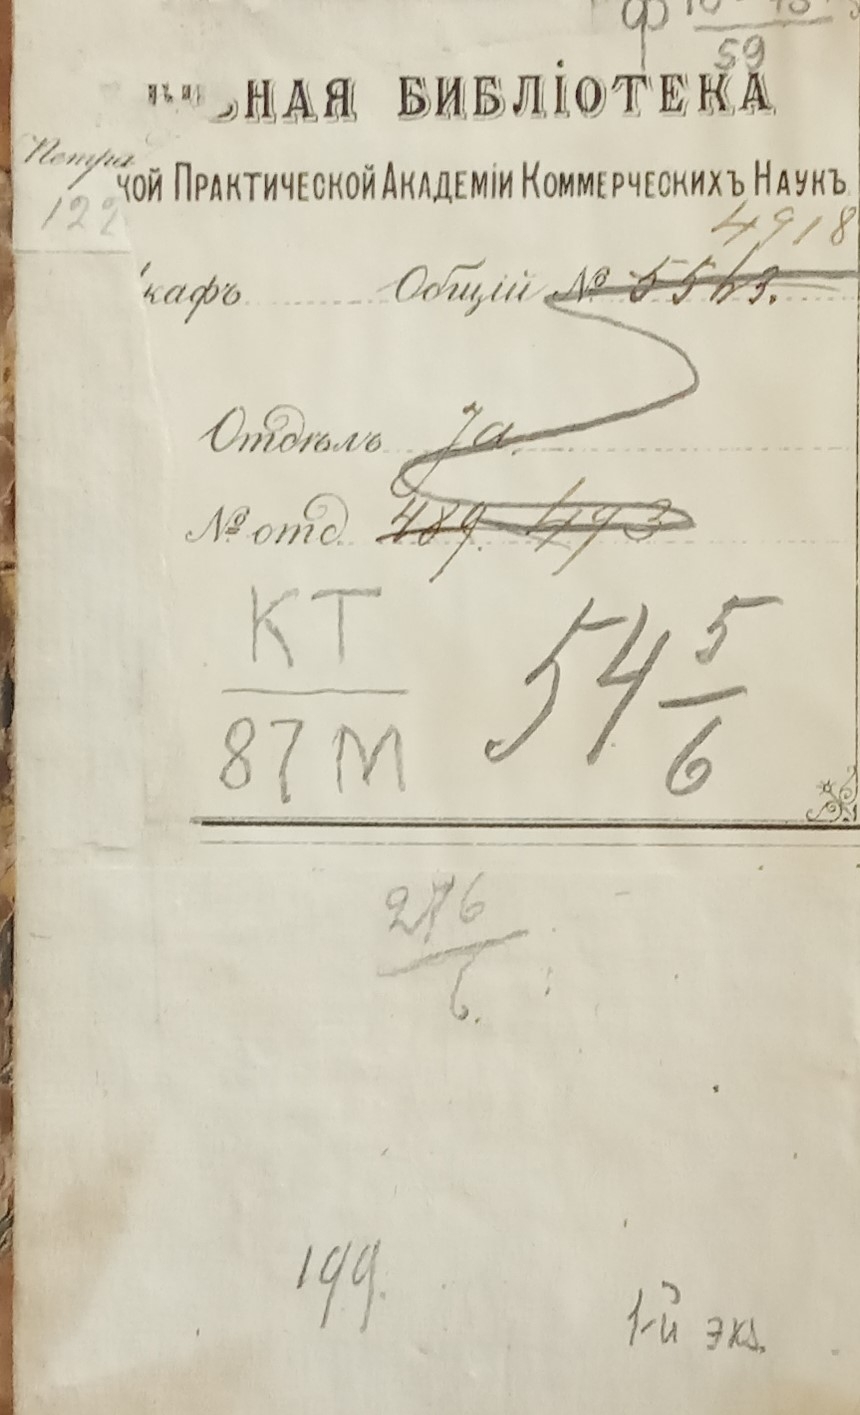 59
НАЯ БИБЛІОТЕКА
Петра
КОЙ ПРАКТИЧЕСКОЙ АКАДЕМІИ КОММЕРЧЕСКИХЪ НАУКЪ
122
4918
кафъ Общій № 5563.
Отдѣлъ Ja.
№ отд. 489. 493
КТ
87М
54 5/6
276
6.
199.
1-й экз.